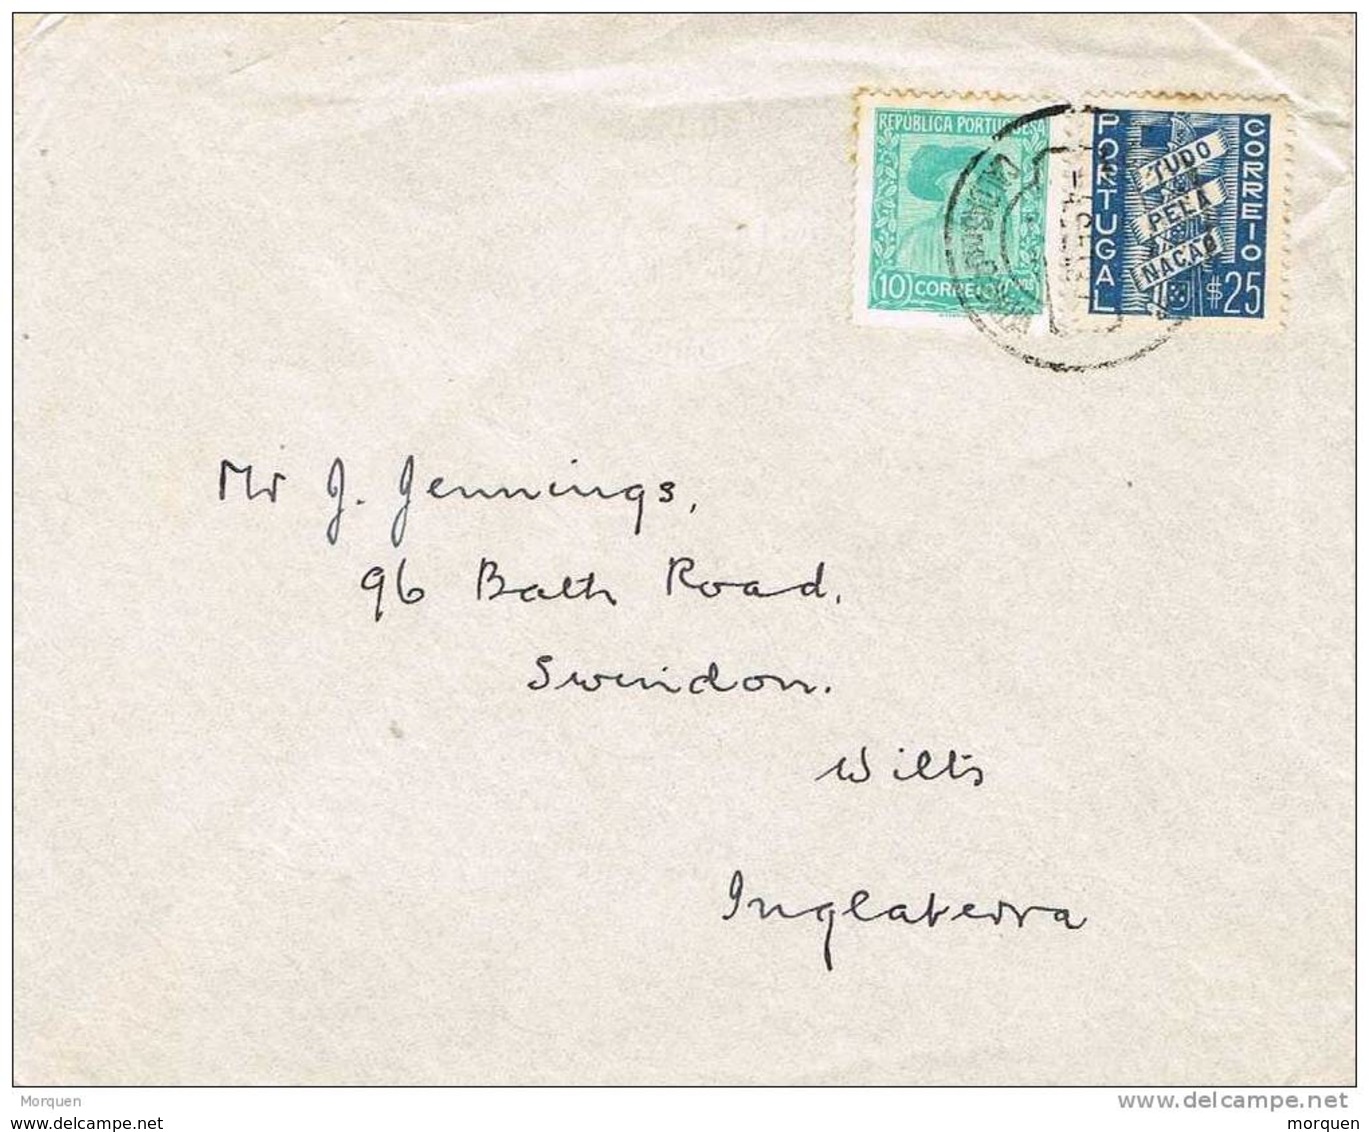 REPÚBLICA PORTUGUESA
10 CORREIO
PORTUGAL
CORREIO
TUDO
PELA
NAÇÃO
$25
Mr J. Jennings,
96 Bath Road,
Swindon.
Wilts
Inglaterra
Morquen
www.delcampe.net
morquen
www.delcampe.net
morquen